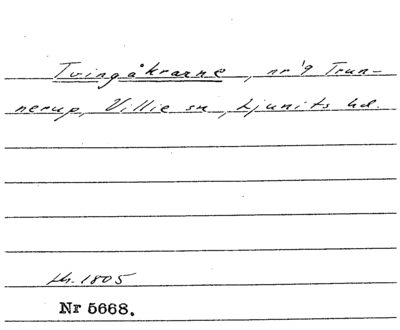 Tvingåkrarne, nr 9 Trun-
nerup, Villie sn, Ljunits hd.
lh. 1805
Nr 5668.